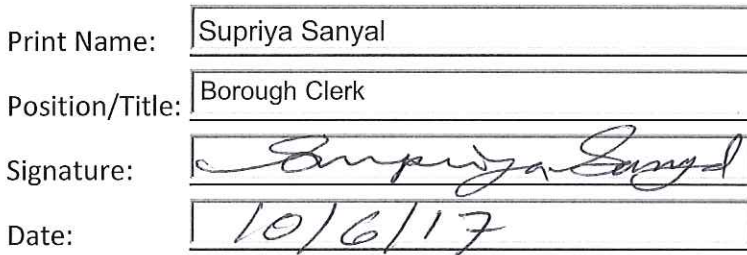 Print Name: Supriya Sanyal
Position/Title: Borough Clerk
Signature: Supriya Sanyal
Date: 10/6/17